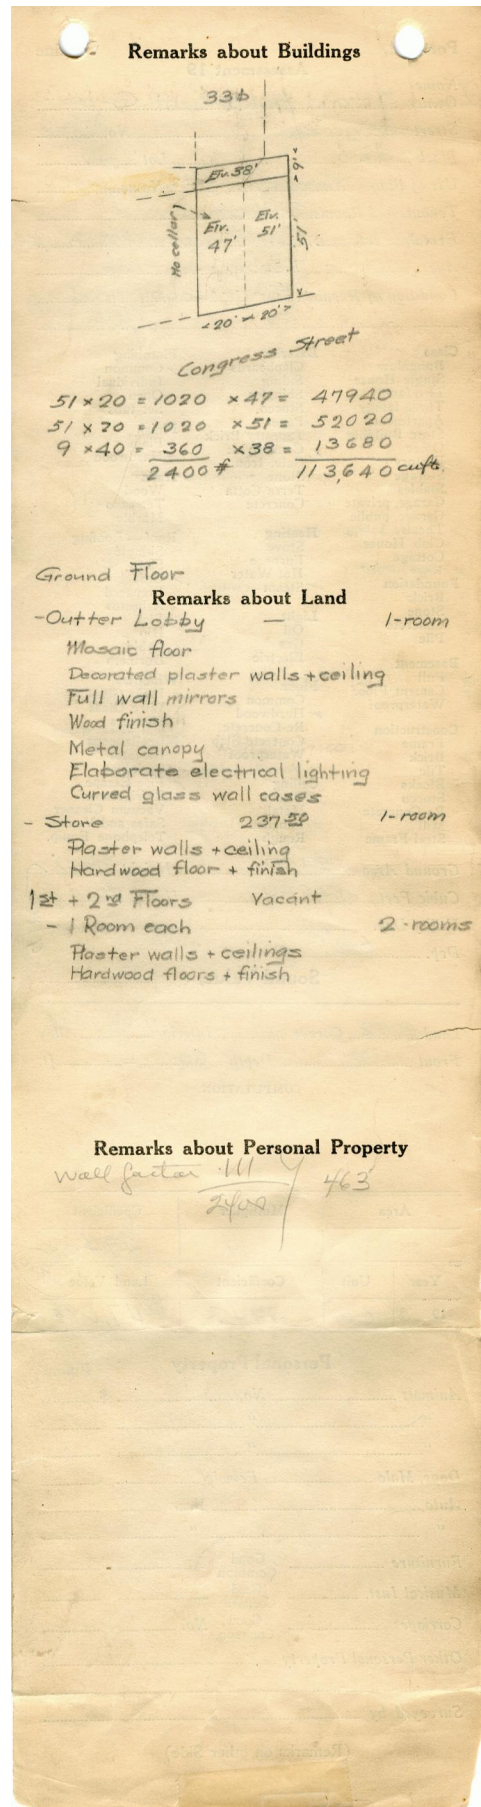 Remarks about Buildings
336
Etv. 38'
9'
No cellar
Etv. 47'
Etv. 51'
51'
20' 20'
Congress Street
51 × 20 = 1020 × 47 = 47940
51 × 20 = 1020 × 51 = 52020
9 × 40 = 360 × 38 = 13680
2400 # 113,640 cuft.
Ground Floor
Remarks about Land
- Outter Lobby — 1-room
Mosaic floor
Decorated plaster walls + ceiling
Full wall mirrors
Wood finish
Metal canopy
Elaborate electrical lighting
Curved glass wall cases
- Store 237.50 1-room
Plaster walls + ceiling
Hardwood floor + finish
1st + 2nd Floors Vacant
- 1 Room each 2-rooms
Plaster walls + ceilings
Hardwood floors + finish
Remarks about Personal Property
Wall factor .111 463
2400